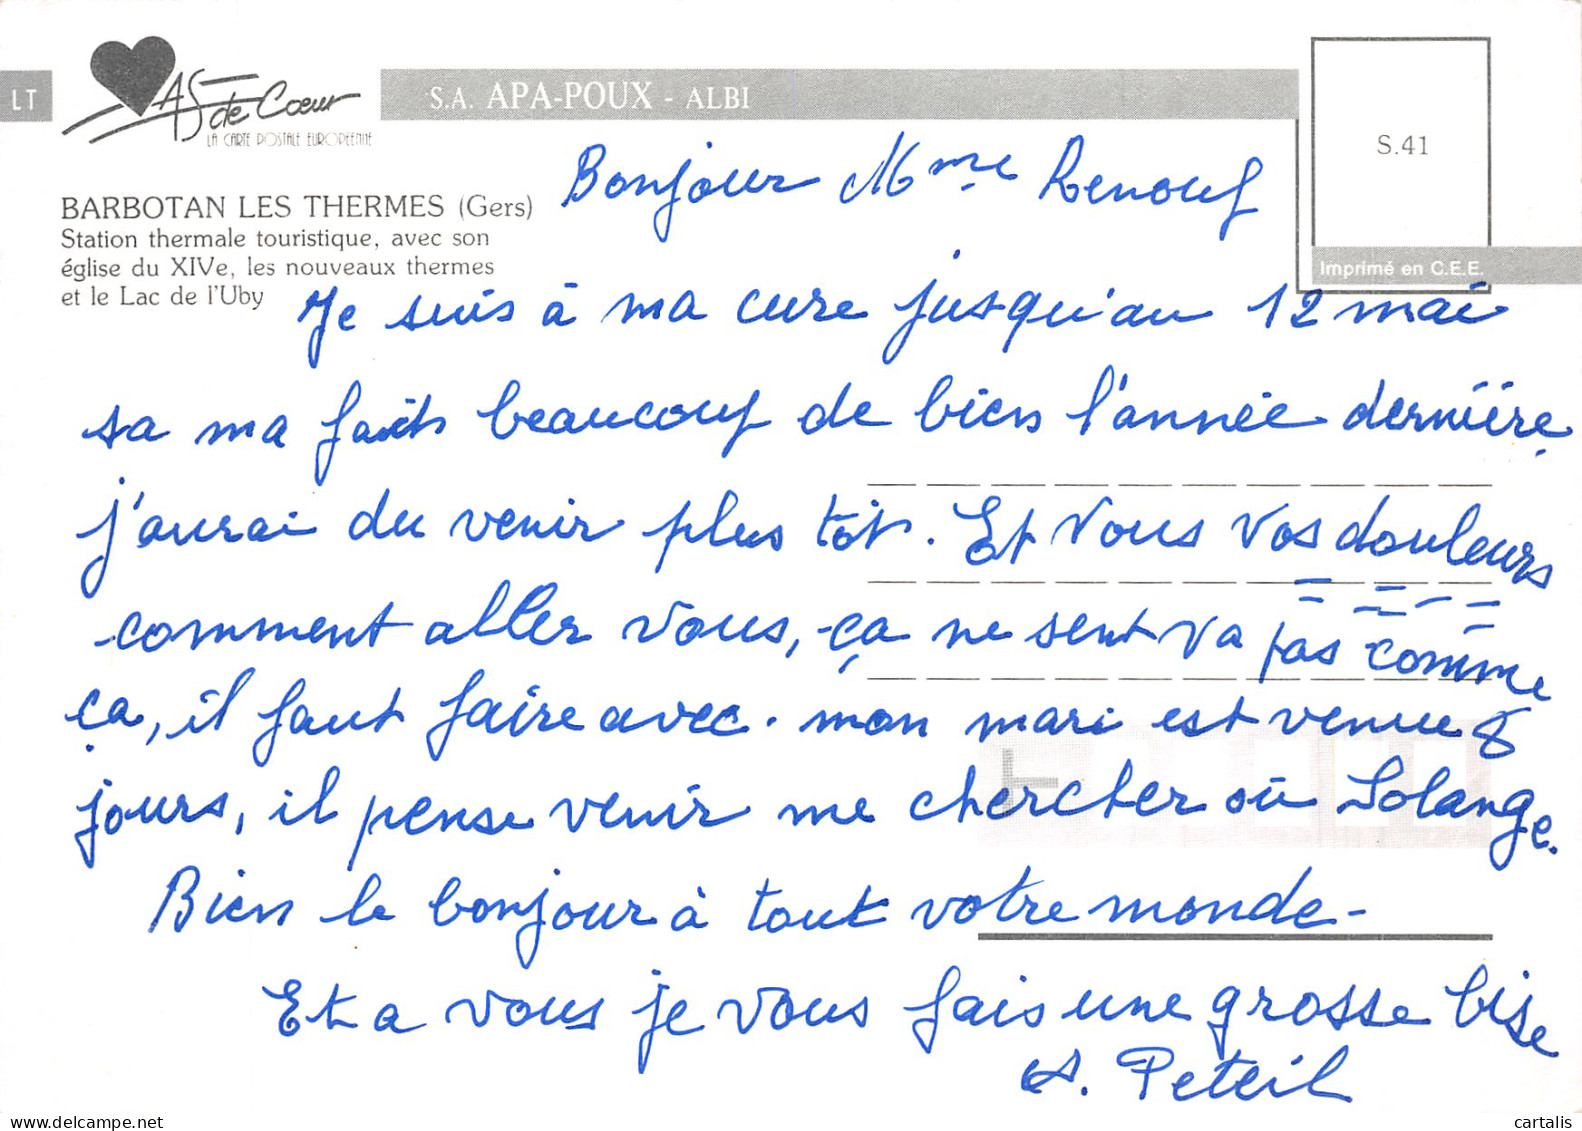 LT
AS de Cœur
LA CARTE POSTALE EUROPÉENNE
S.A. APA-POUX - ALBI
S.41
Imprimé en C.E.E.
BARBOTAN LES THERMES (Gers)
Station thermale touristique, avec son
église du XIVe, les nouveaux thermes
et le Lac de l'Uby
Bonjour Mme Renouf
Je suis à ma cure jusqu'au 12 mai
sa ma fait beaucoup de bien l'année dernière
j'aurai du venir plus tôt. Et vous vos douleurs
comment aller vous, ça ne sent va pas comme
ça, il faut faire avec. mon mari est venue 8
jours, il pense venir me chercher où Solange.
Bien le bonjour à tout votre monde -
Et a vous je vous fais une grosse bise
A. Peteil
delcampe.net
cartalis